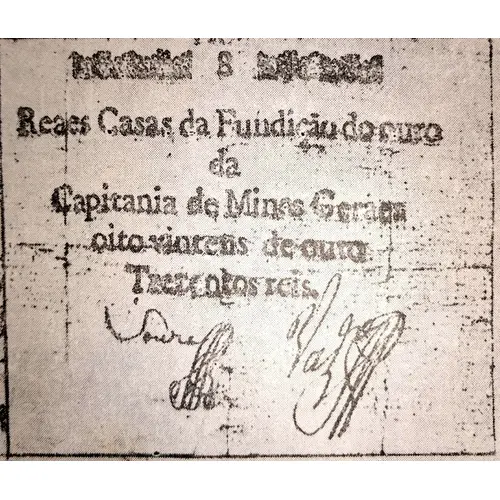 8
Reaes Casas da Fundição do ouro
da
Capitania de Minas Geraes
oito vintens de ouro
Trezentos reis.